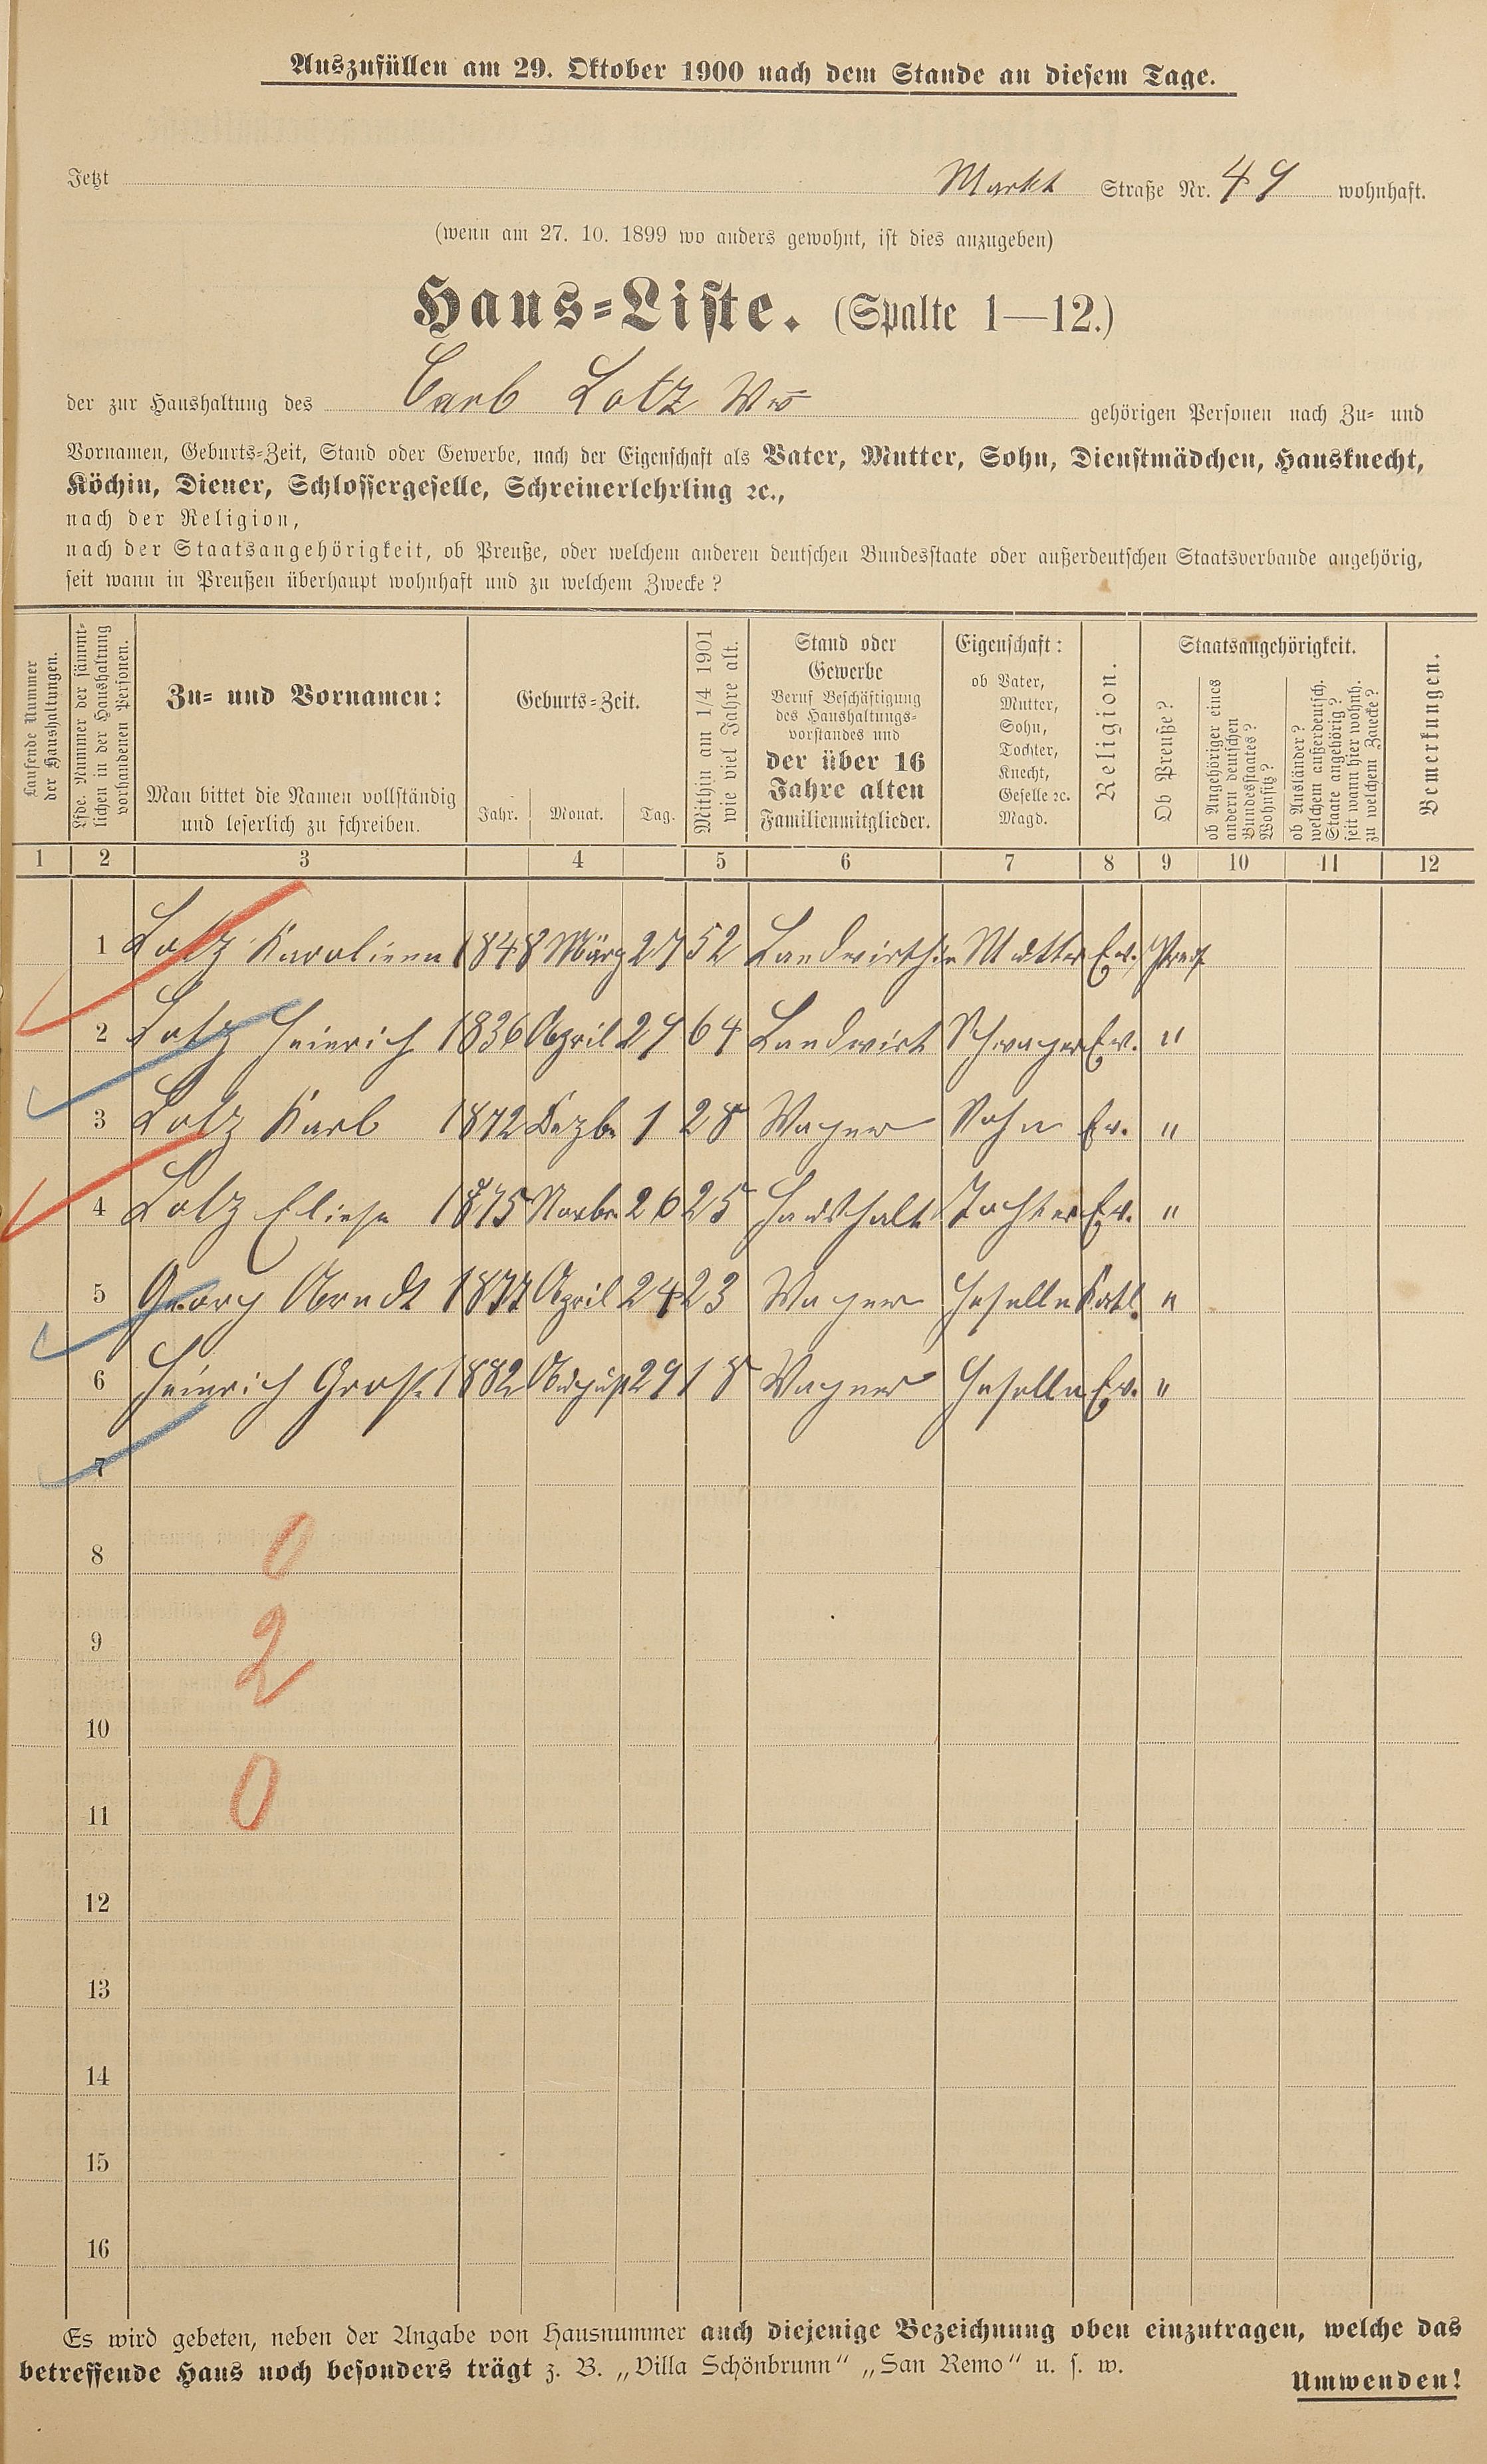 Auszufüllen am 29. Oktober 1900 nach dem Stande an diesem Tage.
Jetzt Markt Straße Nr. 49 wohnhaft.
(wenn am 27. 10. 1899 wo anders gewohnt, ist dies anzugeben)
Haus-Liste. (Spalte 1—12.)
der zur Haushaltung des Carl Lotz Ww gehörigen Personen nach Zu- und
Vornamen, Geburts-Zeit, Stand oder Gewerbe, nach der Eigenschaft als Vater, Mutter, Sohn, Dienstmädchen, Hausknecht,
Köchin, Diener, Schlossergeselle, Schreinerlehrling ꝛc.,
nach der Religion,
nach der Staatsangehörigkeit, ob Preuße, oder welchem anderen deutschen Bundesstaate oder außerdeutschen Staatsverbande angehörig,
seit wann in Preußen überhaupt wohnhaft und zu welchem Zwecke?
Laufende Nummer
der Haushaltungen.
Lfde. Nummer der sämmt-
lichen in der Haushaltung
vorhandenen Personen.
Zu- und Vornamen:
Man bittet die Namen vollständig
und leserlich zu schreiben.
Geburts-Zeit.
Jahr. Monat. Tag.
Mithin am 1/4 1901
wie viel Jahre alt.
Stand oder
Gewerbe
Beruf Beschäftigung
des Haushaltungs-
vorstandes und
der über 16
Jahre alten
Familienmitglieder.
Eigenschaft:
ob Vater,
Mutter,
Sohn,
Tochter,
Knecht,
Geselle ꝛc.
Magd.
Religion.
Staatsangehörigkeit.
Ob Preuße?
ob Angehöriger eines
andern deutschen
Bundesstaates?
Wohnsitz?
ob Ausländer?
welchem außerdeutsch.
Staate angehörig?
seit wann hier wohnh.
zu welchem Zwecke?
Bemerkungen.
1 2 3 4 5 6 7 8 9 10 11 12
1 Lotz Karolienn 1848 März 27 52 Landwirthin Mutter Ev. Preuß
2 Lotz Heinrich 1836 April 29 64 Landwirt Schwager Ev. "
3 Lotz Karl 1872 Dezbr 1 28 Wagner Sohn Ev. "
4 Lotz Eliese 1875 Novbr 26 25 Haushalt Tochter Ev. "
5 Georg Arndt 1877 April 24 23 Wagner Geselle Katl. "
6 Heinrich Groß 1882 August 29 18 Wagner Geselle Ev. "
7
8 0
9 2
10
11 0
12
13
14
15
16
Es wird gebeten, neben der Angabe von Hausnummer auch diejenige Bezeichnung oben einzutragen, welche das
betreffende Haus noch besonders trägt z. B. „Villa Schönbrunn“ „San Remo“ u. s. w.
Umwenden!